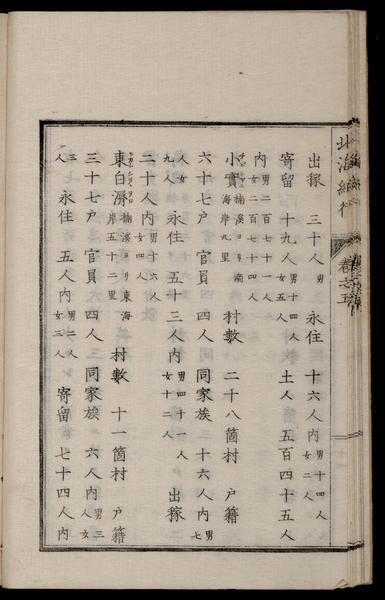 北海紀行 巻之五
出稼 三十人男 永住 十六人内男十四人女二人
寄留 十九人男十四人女五人 土人 五百四十五人
内男二百七十一人女二百七十四人
小實楠溪ヨリ南海岸九里 村數 二十八箇村 戸籍
六十七戸 官員 四人 同家族 三十六人内男七
人女九人 永住 五十三人内男四十一人女十二人 出稼
二十人内男十六人女四人
東白濟楠溪ヨリ東海岸五十二里 村數 十一箇村 戸籍
三十七戸 官員 四人 同家族 六人内男三人女
三人 永住 五人内男二人女三人 寄留 七十四人内